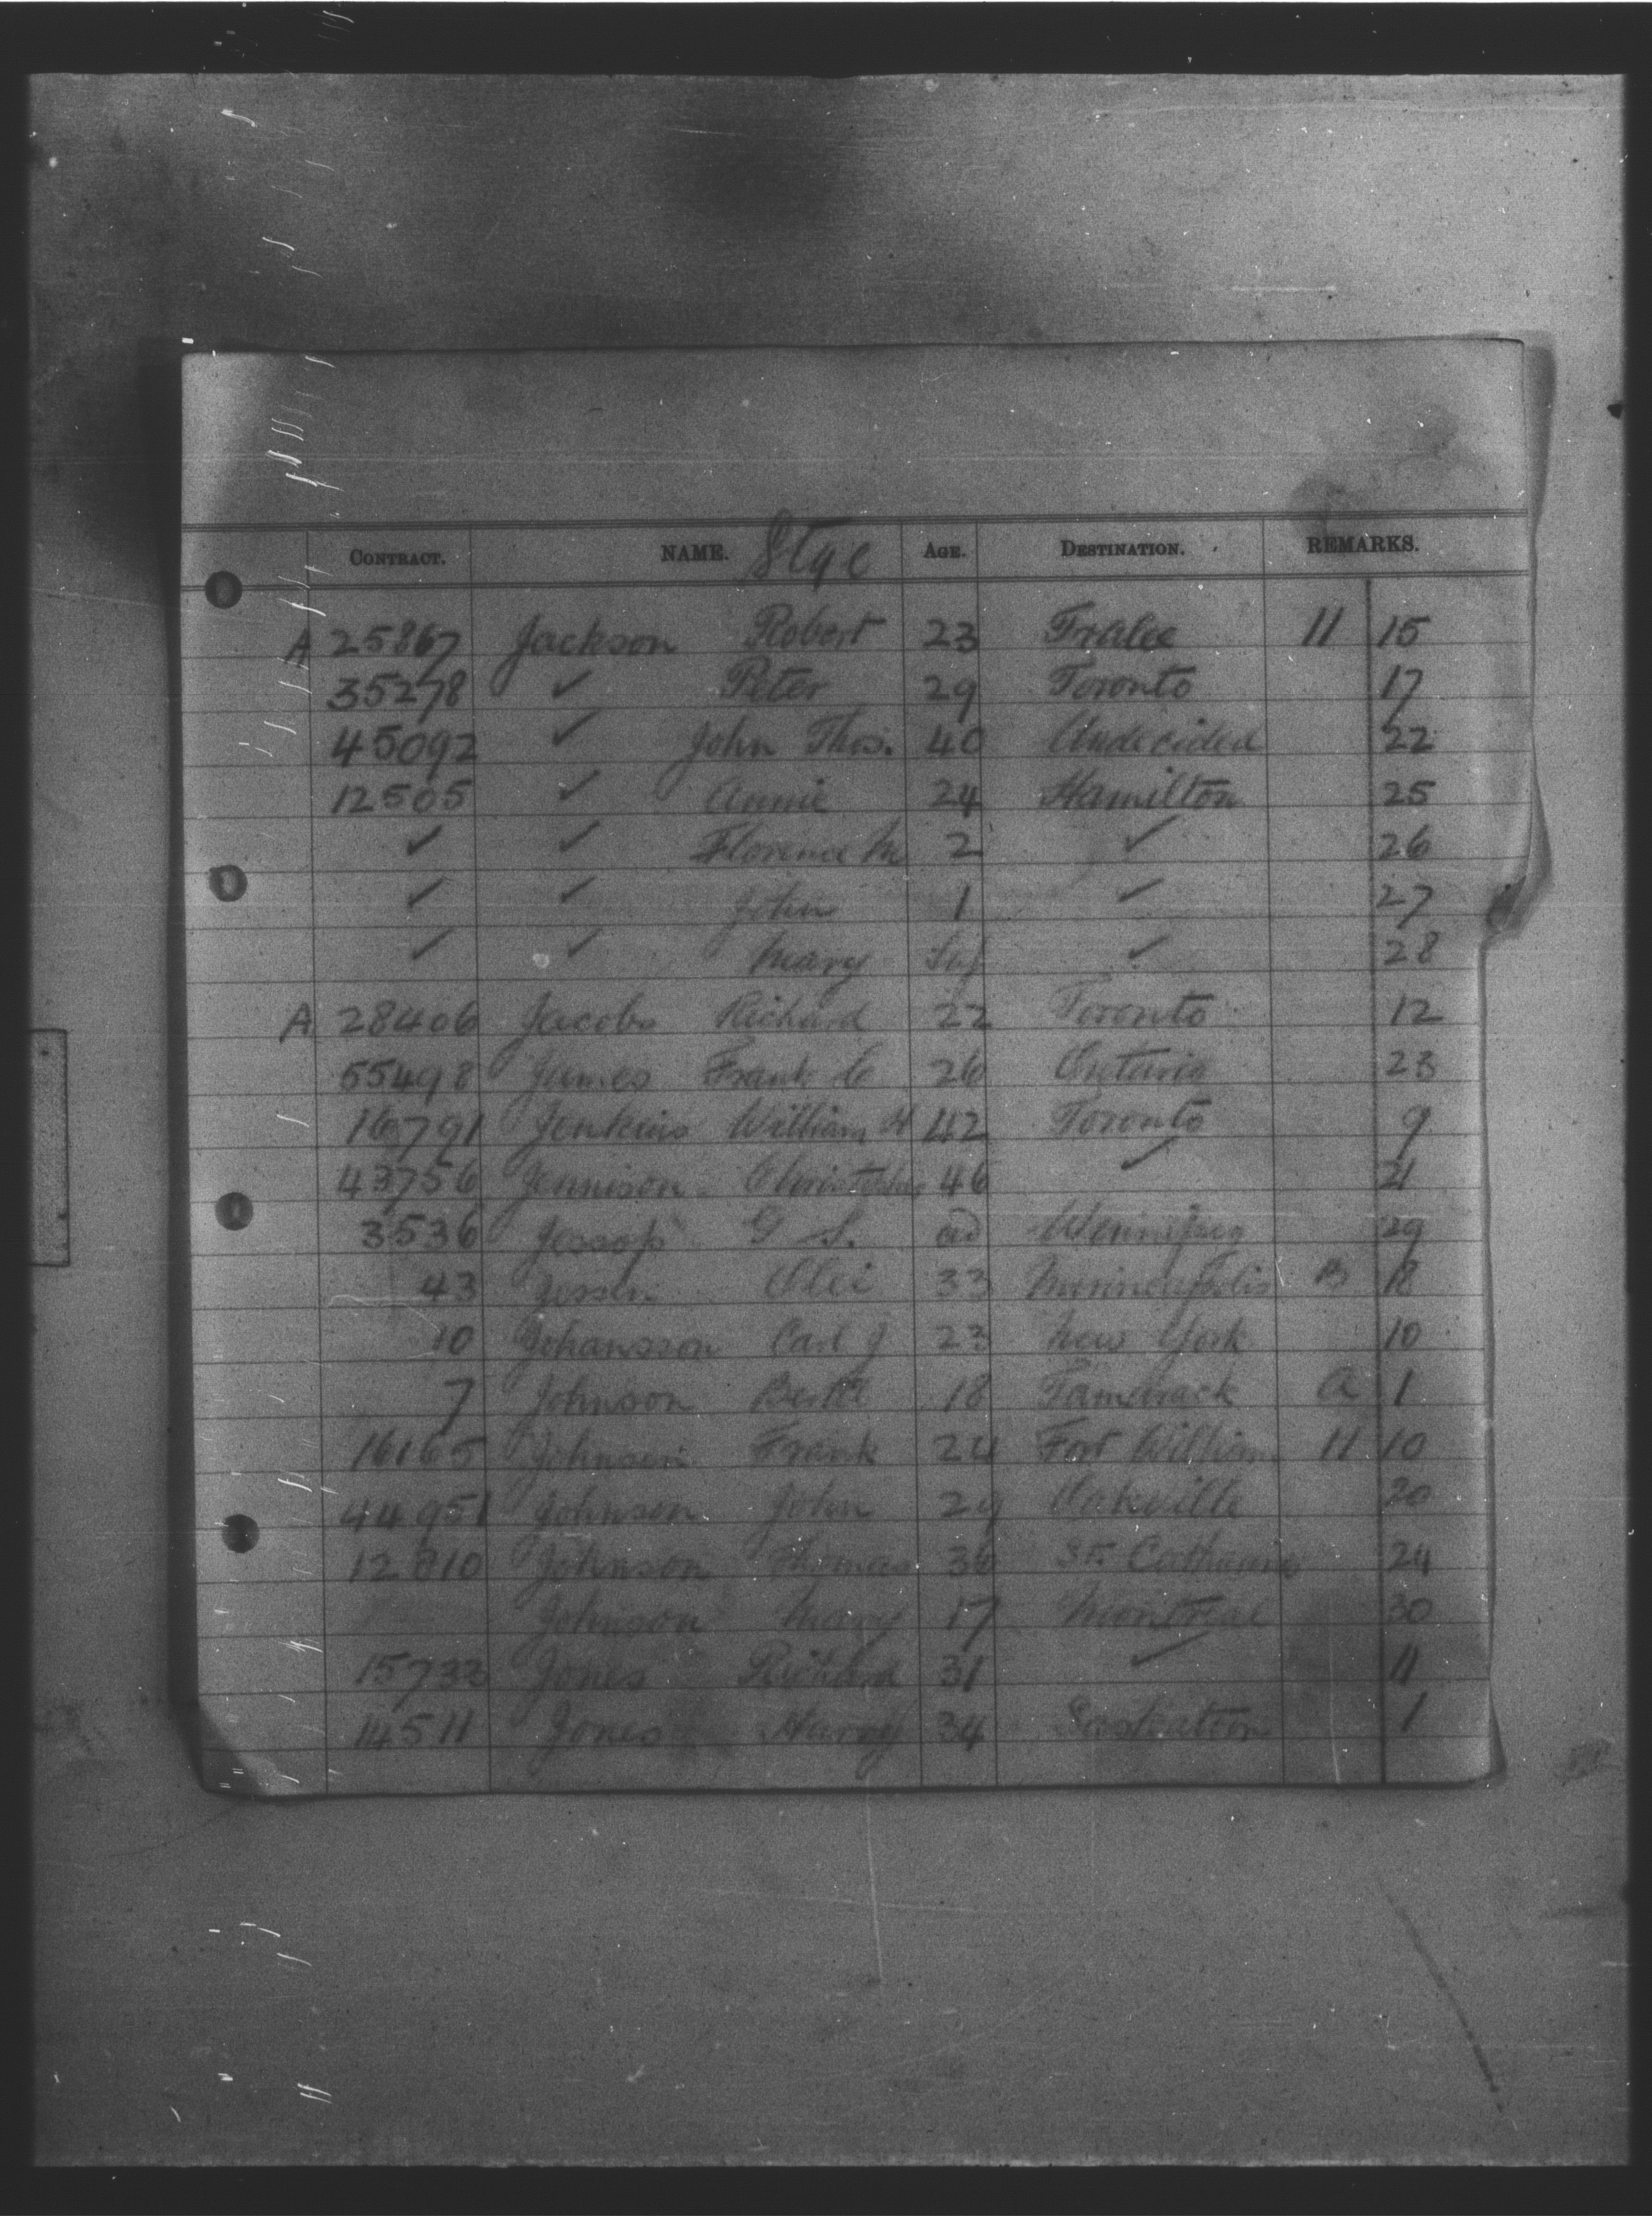 CONTRACT. NAME. Stge AGE. DESTINATION. REMARKS.
A 25867 Jackson Robert 23 Tralee 11 15
35278 ✓ Peter 29 Toronto 17
45092 ✓ John Thos. 40 Undecided 22
12505 ✓ Annie 24 Hamilton 25
✓ ✓ Florence M 2 ✓ 26
✓ ✓ John 1 ✓ 27
✓ ✓ Mary Inf ✓ 28
A 28406 Jacobs Richard 22 Toronto 12
55498 James Frank C 26 Ontario 23
16791 Jenkins William H 42 Toronto 9
43756 Jennison Christopher 46 ✓ 21
3536 Jessop G S. ad Winnipeg 29
43 33 Minneapolis B 18
10 Johansson Carl J 23 New York 10
7 Johnson Bertel 18 Tamarack a 1
16165 Johnson Frank 24 Fort William 11 10
44951 Johnson John 29 Oakville 20
12810 Johnson Thomas 36 St. Catharines 24
Johnson Mary 17 Montreal 30
15733 Jones Richard 31 ✓ 11
14511 Jones Harry 34 Saskatoon 1